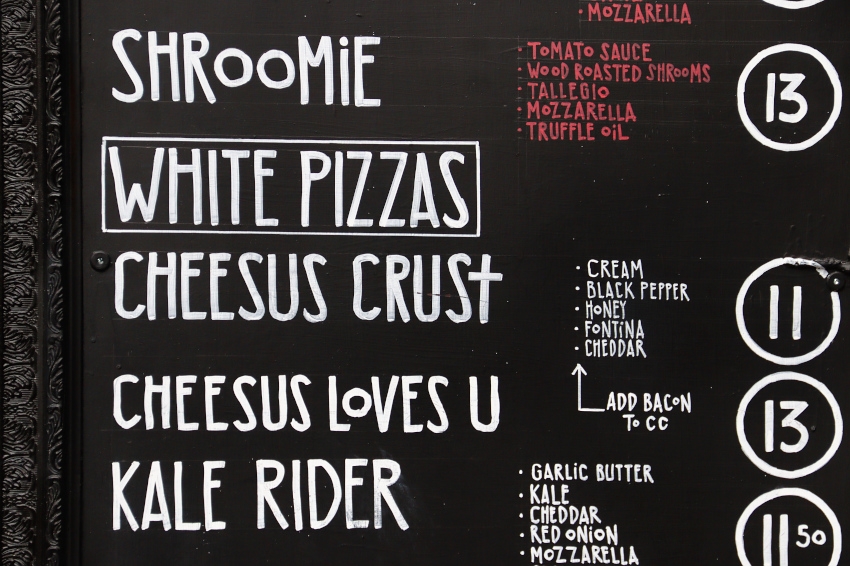 • MOZZARELLA
SHROOMiE
• TOMATO SAUCE
• WOOD ROASTED SHROOMS
• TALLEGIO
• MOZZARELLA
• TRUFFLE OiL
13
WHITE PIZZAS
CHEESUS CRUSt
• CREAM
• BLACK PEPPER
• HONEY
• FONTINA
• CHEDDAR
11
ADD BACON
To CC
CHEESUS LOVES U
13
KALE RIDER
• GARLIC BUTTER
• KALE
• CHEDDAR
• RED ONION
• MOZZARELLA
11 50